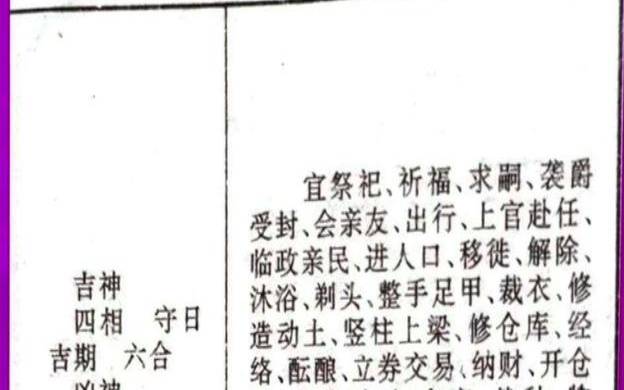 吉神
四相　守日
吉期　六合
宜祭祀、祈福、求嗣、袭爵
受封、会亲友、出行、上官赴任、
临政亲民、进人口、移徙、解除、
沐浴、剃头、整手足甲、裁衣、修
造动土、竖柱上梁、修仓库、经
络、酝酿、立券交易、纳财、开仓